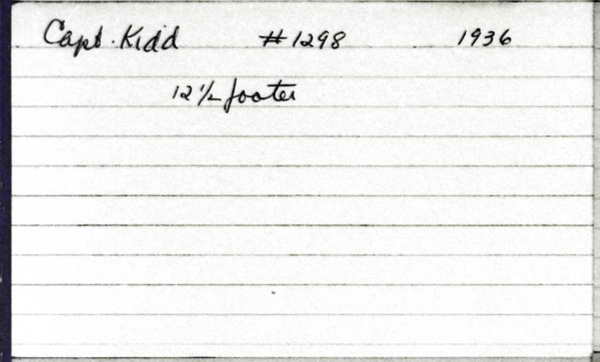 Capt. Kidd #1298 1936
12 1/2 footer